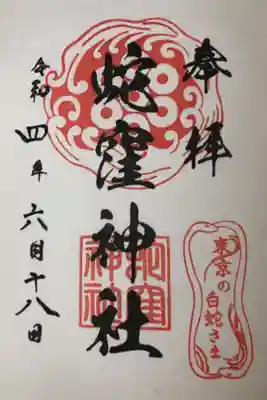 奉拝
蛇窪神社
令和四年六月十八日
東京の
白蛇さま